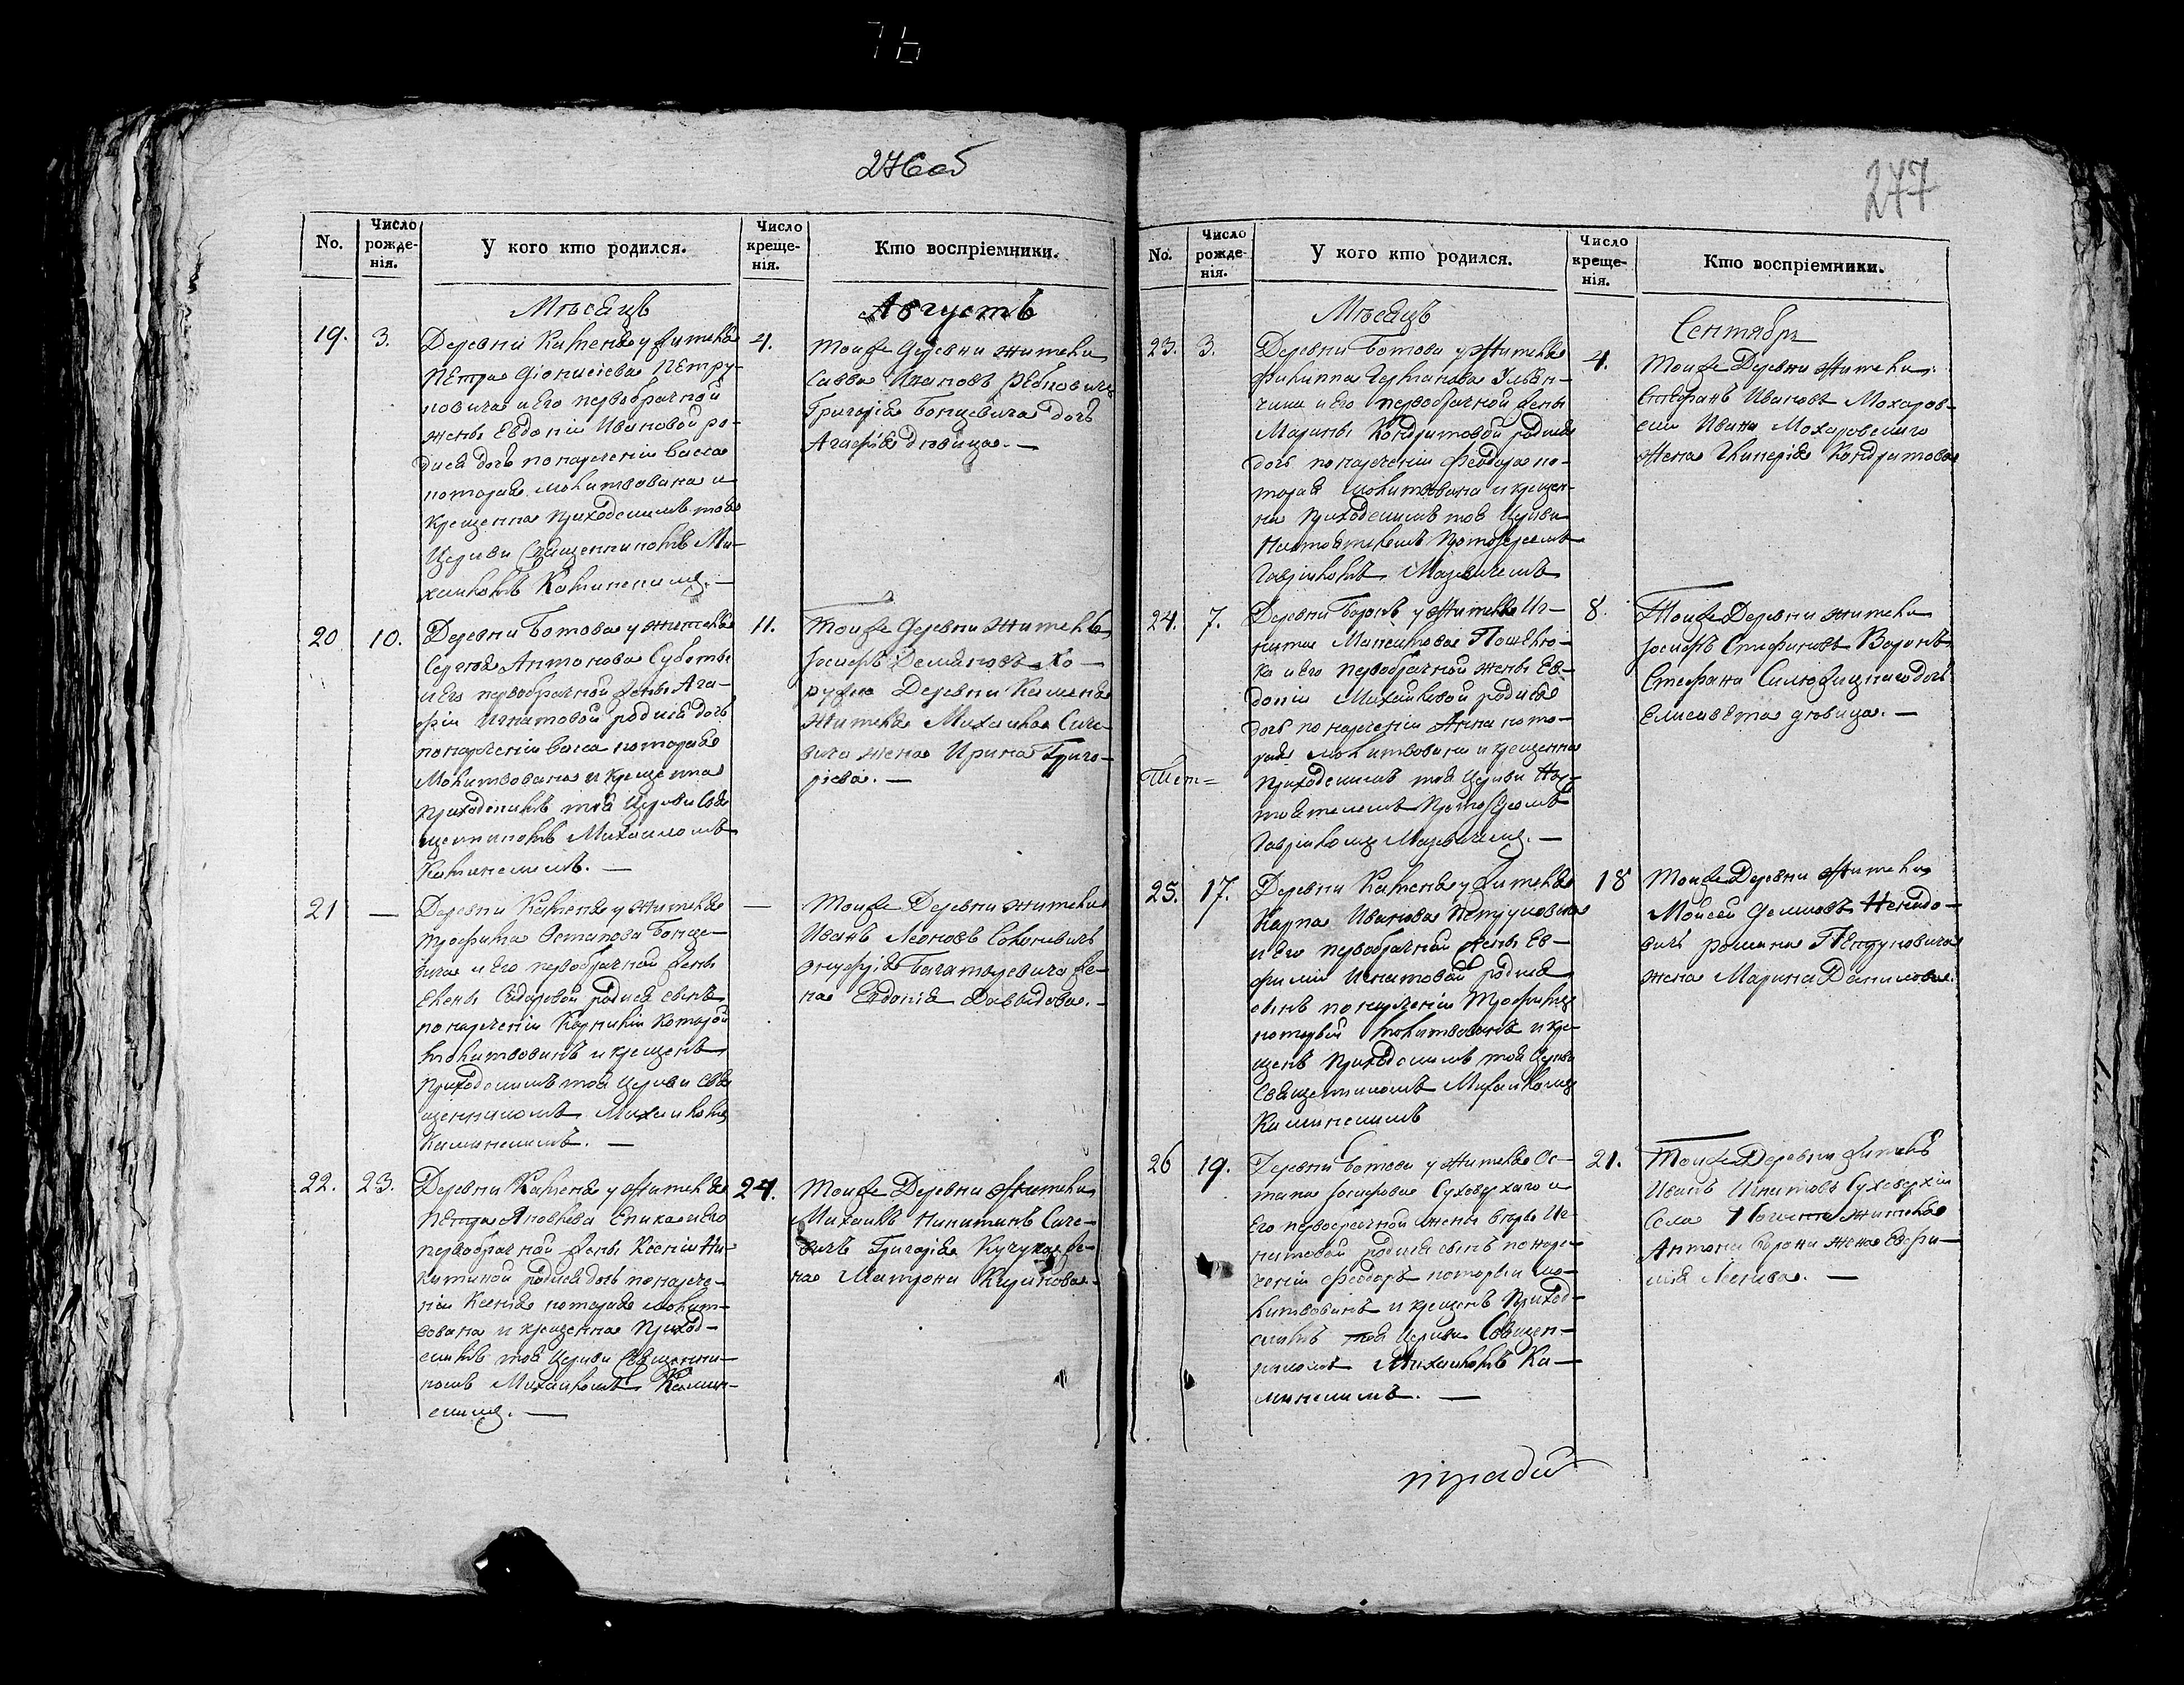 246об
No.
Число рожде-нія.
У кого кто родился.
Число креще-нія.
Кто воспріемники.
Мѣсяцъ
Августъ
19.
3.
Деревни Каменя у жителя
Петра Діонисіева Петру-
новича и его первобрачной
жены Евдокіи Ивановой ро-
дися дочь по наречении Васса
которая молитвована и
крещенна приходскимъ тоя
Церкви Священникомъ Ми-
хаиломъ
4.
Тойже Деревни жители
Савва Ивановъ
Григорія Бонцевича дочь
Агафія дѣвица. —
20
10.
Деревни Ботова у жителя
Сергея Антонова Суботы
и его первобрачной жены Ага-
фіи Игнатовой родися дочь
по наречении Васса которая
Молитвована и крещенна
приходскимъ тоя Церкви Свя
щенникомъ Михаиломъ
11.
Тойже Деревни житель
Іосифъ Демяновъ Хо-
ружа Деревни Каменя
жителя Михаила Саче-
вича жена Ирина Григо-
ріева. —
21
—
Деревни Каменя у жителя
Трофима Остапова Бонце-
вича и его первобрачной жены
Елены Сидоровой родися сынъ
по наречении Корнилій которой
молитвованъ и крещенъ
приходскимъ тоя Церкви Свя
щенникомъ Михаиломъ
—
Тойже Деревни жители
Иванъ Леоновъ
Онуфрія Богатыревича же-
на Евдокія Давыдова. —
22.
23.
Деревни Каменя у жителя
Петра Яковлева и его
первобрачной жены Ксеніи Ни-
китиной родися дочь по нарече-
ніи Ксенія которая молит-
вована и крещенна Приход-
скимъ тоя Церкви Священни-
комъ Михаиломъ
24.
Тойже Деревни жители
Михаилъ Никитинъ Саче-
вичъ Григорія Кучука же-
на Матрона
247
No.
Число рожде-нія.
У кого кто родился.
Число креще-нія.
Кто воспріемники.
Мѣсяцъ
Сентябрь
23.
3.
Деревни Ботова у Жителя
Филиппа Германова Ульян-
чика и его первобрачной жены
Марины Кондратовой родися
дочь по наречении Феодора ко-
торая молитвована и крещен-
на приходскимъ тоя Церкви
Настоятелемъ Протоіереемъ
Гавріиломъ
4.
Тойже Деревни жители
Стефанъ Ивановъ Мохаров-
скій Ивана Мохаровскаго
жена Гликерія Кондратова
24.
7.
Деревни Боронъ у Жителя Иг-
натія
ка и его первобрачной жены Ев-
докіи Михайловой родися
дочь по наречении Анна кото-
рая молитвована и крещенна
приходскимъ тоя Церкви Нас-
тоятелемъ Протоіереемъ
Гавріиломъ
8.
Тойже Деревни жители
Іосифъ Стефановъ Воронъ
Стефана дочь
Елисавета дѣвица. —
25.
17.
Деревни Каменя у жителя
Карпа Иванова Петруновича
и его первобрачной жены Ев-
фиміи Игнатовой родися
сынъ по наречении Трофимъ
который молитвованъ и кре-
щенъ приходскимъ тоя Церкви
Священникомъ Михаиломъ
18
Тойже Деревни жители
Мойсей
Романа Петруновича
жена Марина Данилова.
26
19.
Деревни Ботова у жителя Ос-
тапа Іосифова Суховерхаго и
Его первобрачной жены Иг-
натовой родися сынъ по наре-
ченіи Феодоръ который мо-
литвованъ и крещенъ Приход-
скимъ тоя Церкви Священ-
никомъ Михаиломъ
21.
Тойже Деревни житель
Иванъ Игнатовъ Суховерхій
Села жителя
Антона жена Евфи-
мія Леонова. —